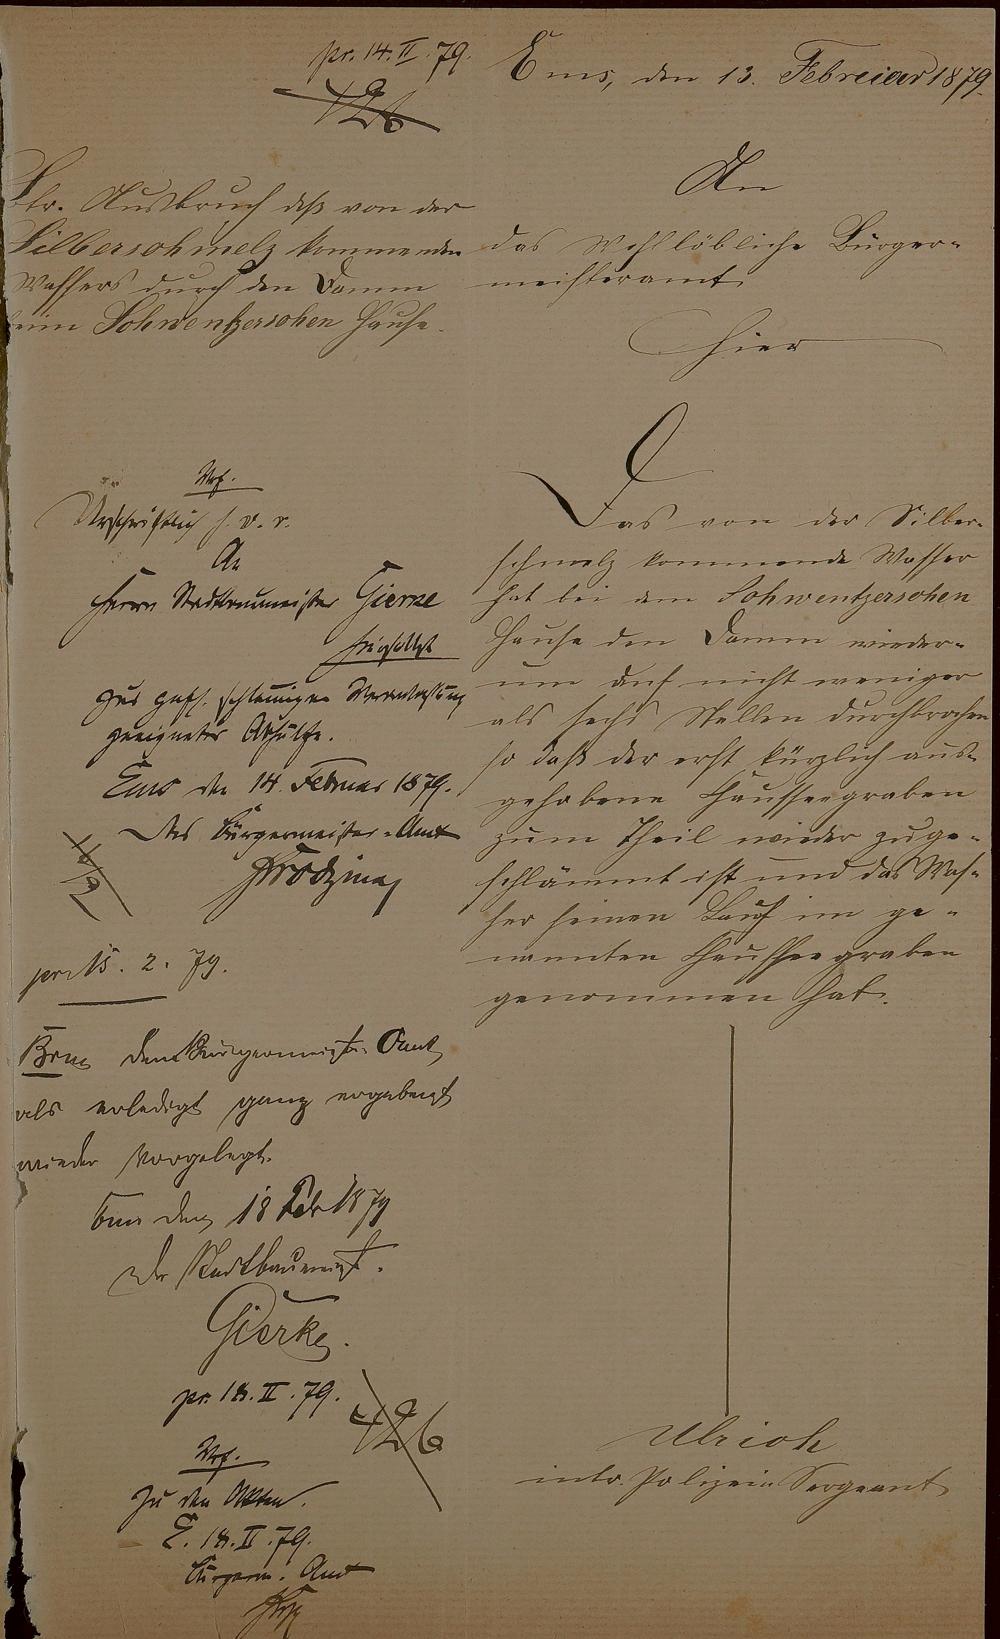 pr. 14. II. 79.
Ems, den 13. Februar 1879.
726
Btr. Ausbruch deß von der
Silberschmelz kommenden
Wassers durch den Damm
beim Schwentzerschen Hause.
An
das Wohllöbliche Bürger-
meisteramt
Hier
Das von der Silber-
schmelz kommende Wasser
hat bei dem Schwentzerschen
Hause den Damm wieder-
um auf nicht weniger
als sechs Stellen durchbrochen
so daß der erst kürzlich aus-
gehobene Chausseegraben
zum Theil wieder zuge-
schlämmt ist und das Was-
ser seinen Lauf im ge-
nannten Chausseegraben
genommen hat.
Ulrich
intr. Polizei Sergeant
Vrf.
Urschriftlich s. v. r.
An
Herrn Stadtbaumeister Gierke
hierselbst
zur gefl. schleunigen Veranlassung
geeigneter Abhülfe.
Ems den 14. Februar 1879.
Das Bürgermeister-Amt
pr. 15. 2. 79.
Brm dem Bürgermeister Amt
als erledigt ganz ergebenst
wieder vorgelegt.
Ems den 18 Febr 1879
Der Stadtbaumeist.
Gierke.
pr. 18. II. 79.
726
Vrf.
Zu den Akten.
E. 18. II. 79.
Bürgerm. Amt